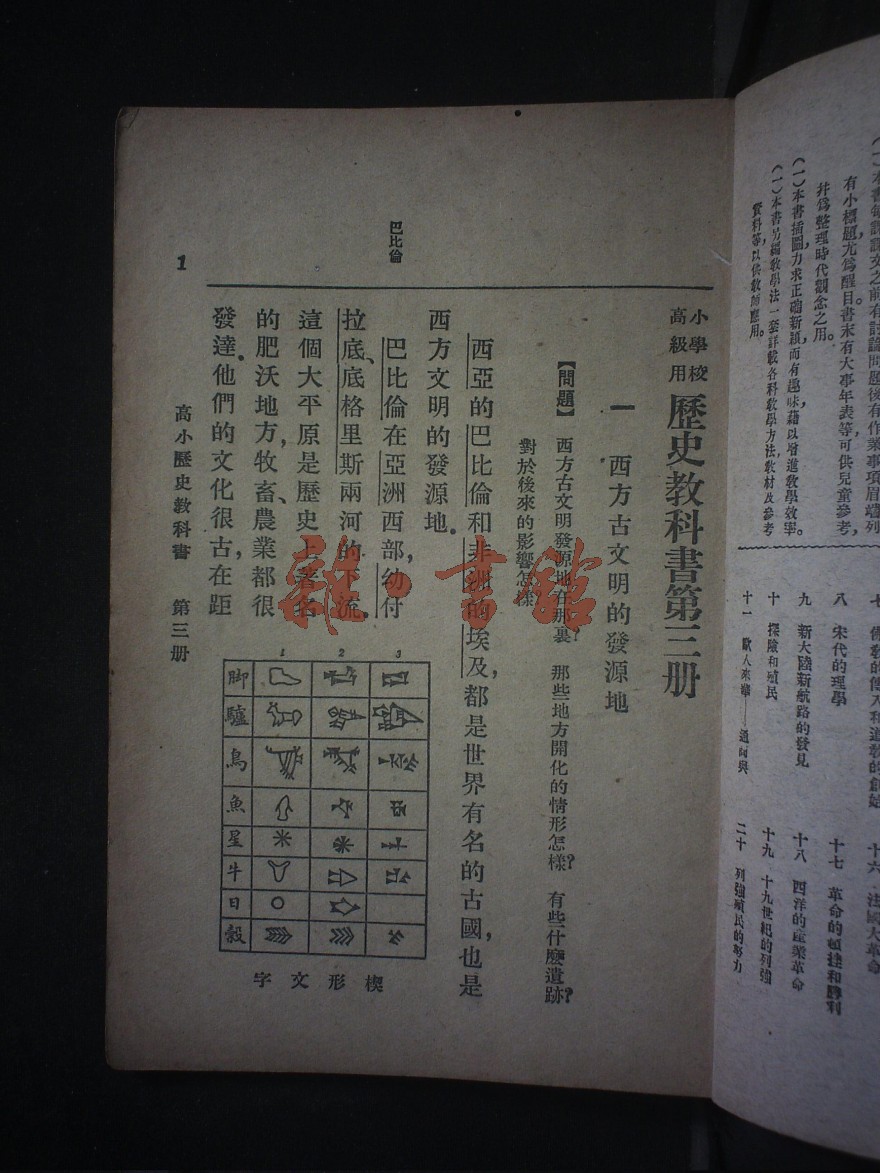 (一)本書插圖力求正確新穎而有趣味藉以增進教學效率。
(一)本書另編教學法一套詳載各科教學方法教材及參考
資料等以供教師應用。
有小標題尤爲醒目書末有大事年表等可供兒童參考,
幷爲整理時代觀念之用。
八 宋代的理學
九 新大陸新航路的發見
十 探險和殖民
十六 法國大革命
十七 革命的頓挫和勝利
十八 西洋的產業革命
十九 十九世紀的列強
二十 列強殖民的努力
小學校
高級用
歷史教科書第三册
一 西方古文明的發源地
【問題】 西方古文明發源地在那裏? 那些地方開化的情形怎樣? 有些什麼遺跡?
對於後來的影響怎樣?
西亞的巴比倫和非洲的埃及,都是世界有名的古國,也是
西方文明的發源地。
巴比倫在亞洲西部,幼付
拉底、底格里斯兩河的下流。
這個大平原是歷史上著名
的肥沃地方,牧畜、農業都很
發達。他們的文化很古,在距
巴比倫
1
高小歷史教科書 第三册
1 2 3
脚
驢
鳥
魚
星
牛
日
穀
字文形楔
雜·書館